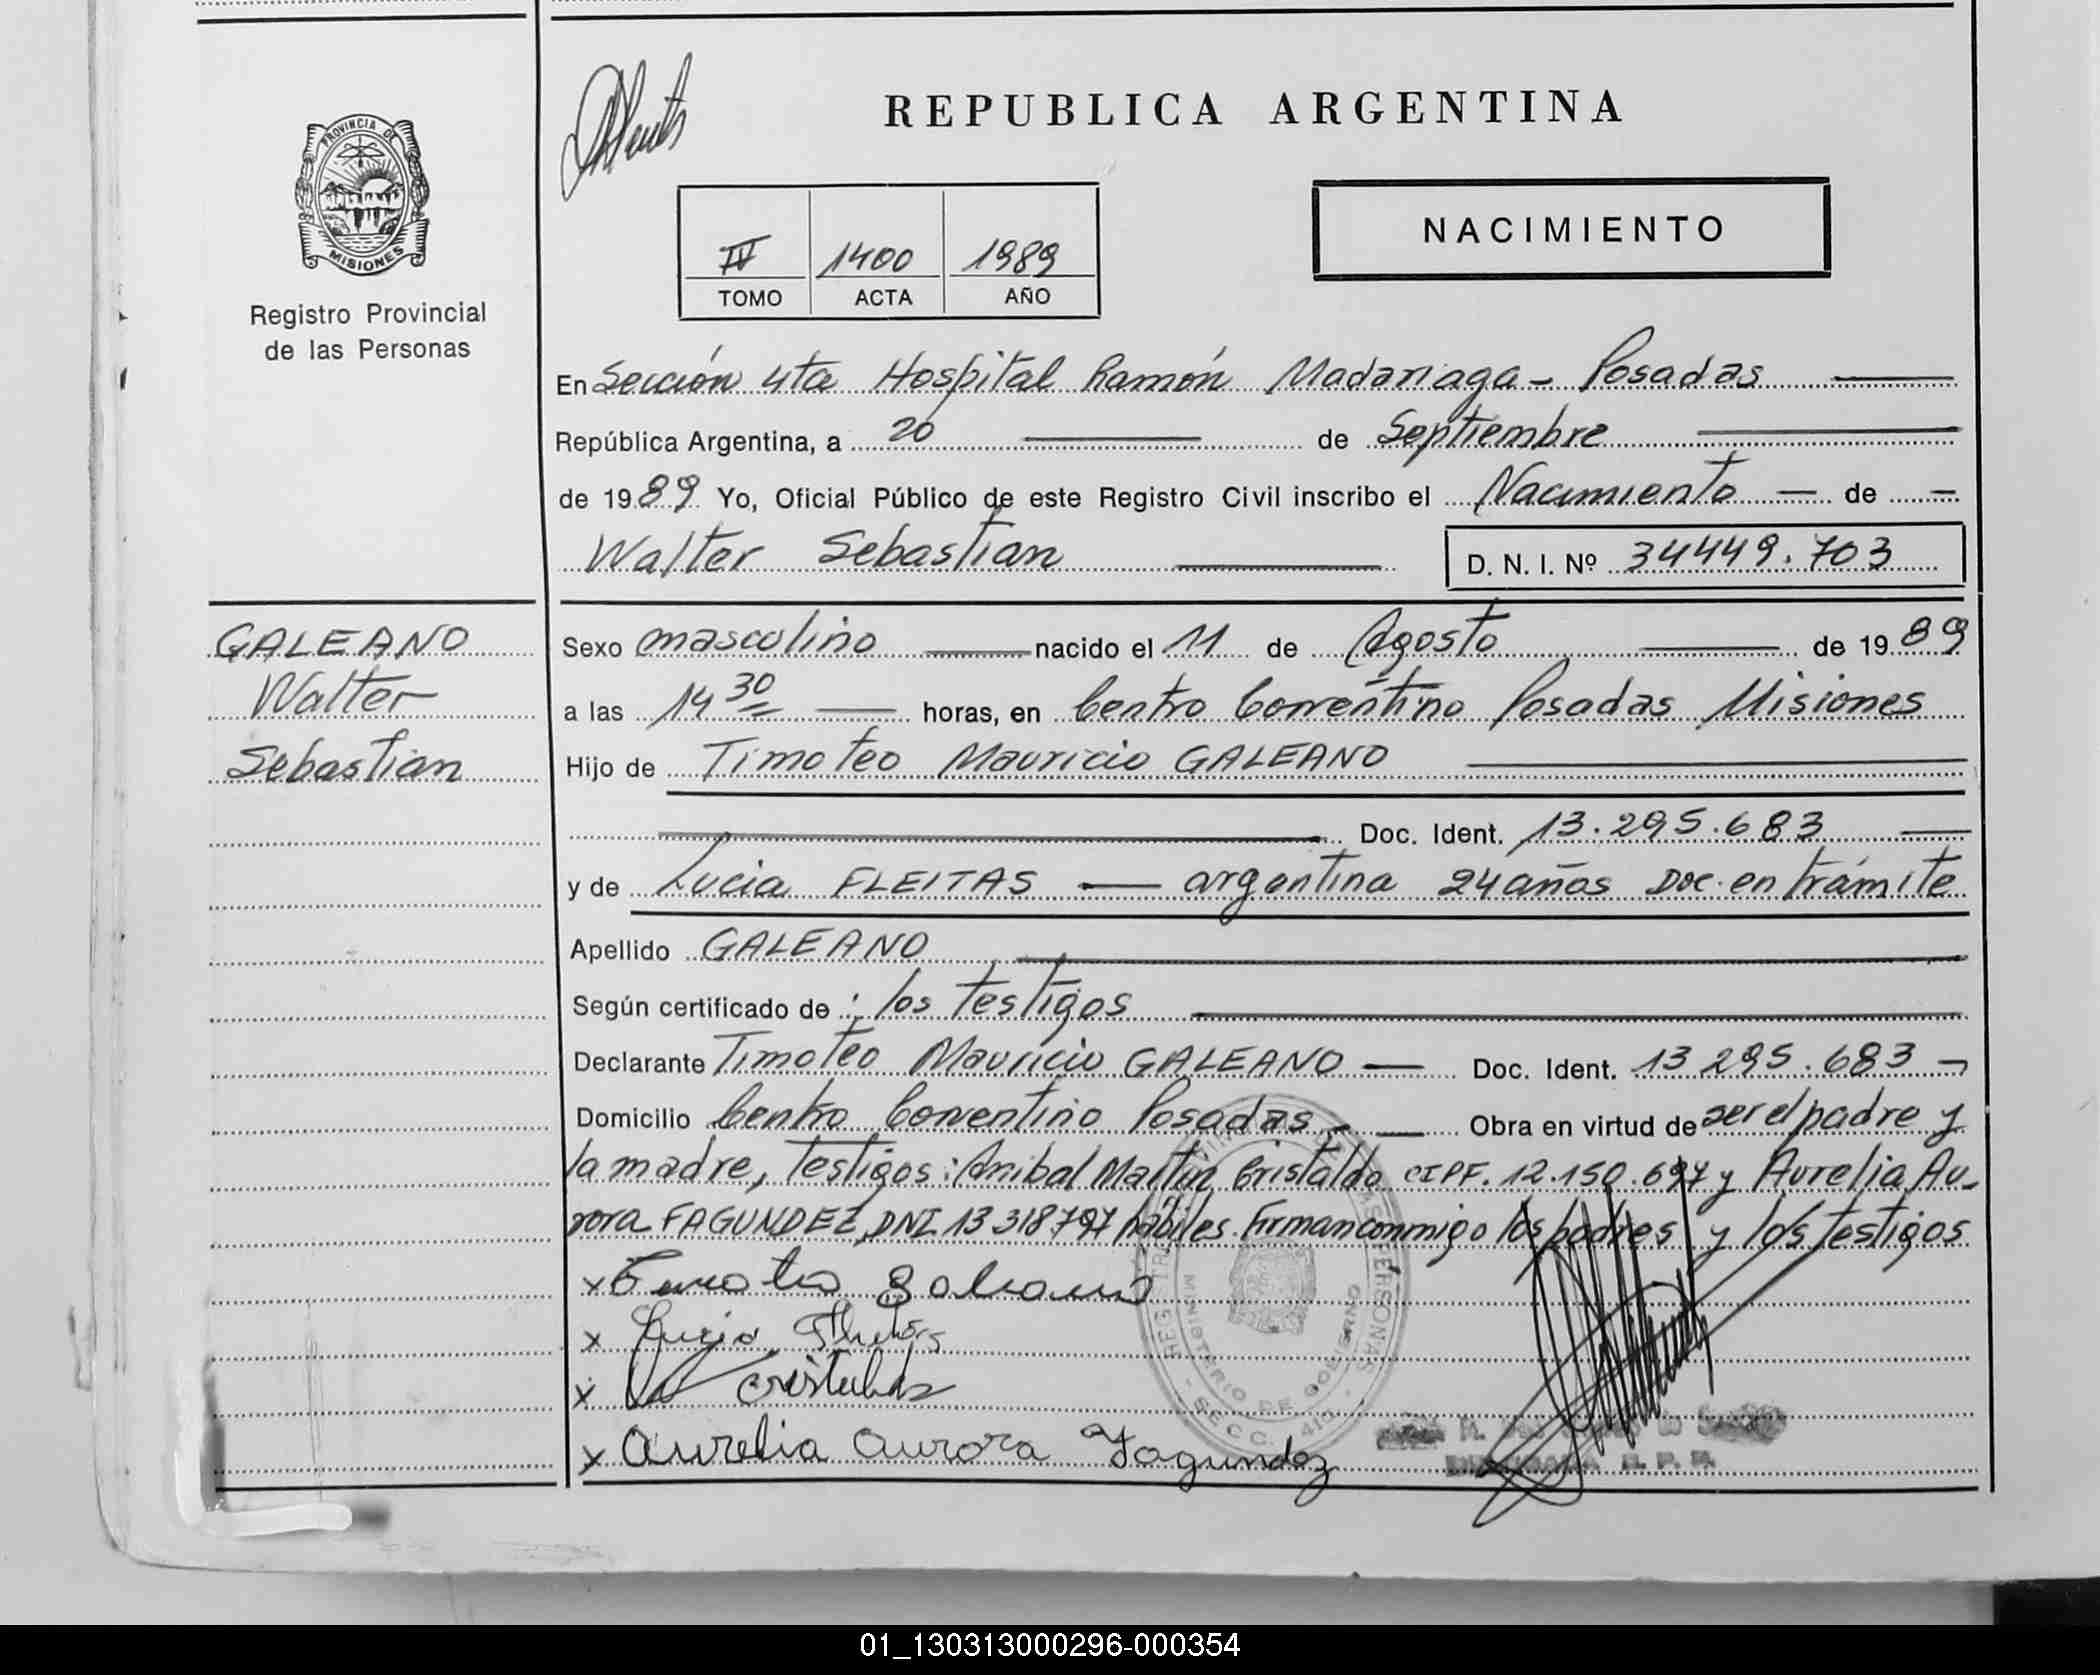 REPUBLICA ARGENTINA
PROVINCIA DE
MISIONES
Registro Provincial
de las Personas
IV 1400 1989
TOMO ACTA AÑO
NACIMIENTO
En Sección 4ta Hospital Ramón Madariaga - Posadas
República Argentina, a 20 de Septiembre
de 1989 Yo, Oficial Público de este Registro Civil inscribo el Nacimiento de
Walter Sebastian D. N. I. Nº 34449.703
GALEANO
Walter
Sebastian
Sexo masculino nacido el 11 de Agosto de 1989
a las 14 30 horas, en Centro Correntino Posadas Misiones
Hijo de Timoteo Mauricio GALEANO
Doc. Ident. 13.295.683
y de Lucia FLEITAS argentina 24 años Doc. en trámite
Apellido GALEANO
Según certificado de : los testigos
Declarante Timoteo Mauricio GALEANO Doc. Ident. 13 295.683
Domicilio Centro Correntino Posadas - Obra en virtud de ser el padre y
la madre, Testigos: Anibal Martin Cristaldo CIPF. 12.150.697 y Aurelia Au-
rora FAGUNDEZ, DNI 13 318 797 hábiles. Firman conmigo los padres y los testigos
x Timoteo Galeano
x Lucia Fleitas
x Cristaldo
x Aurelia Aurora Fagundez
MINISTERIO DE GOBIERNO
01_130313000296-000354